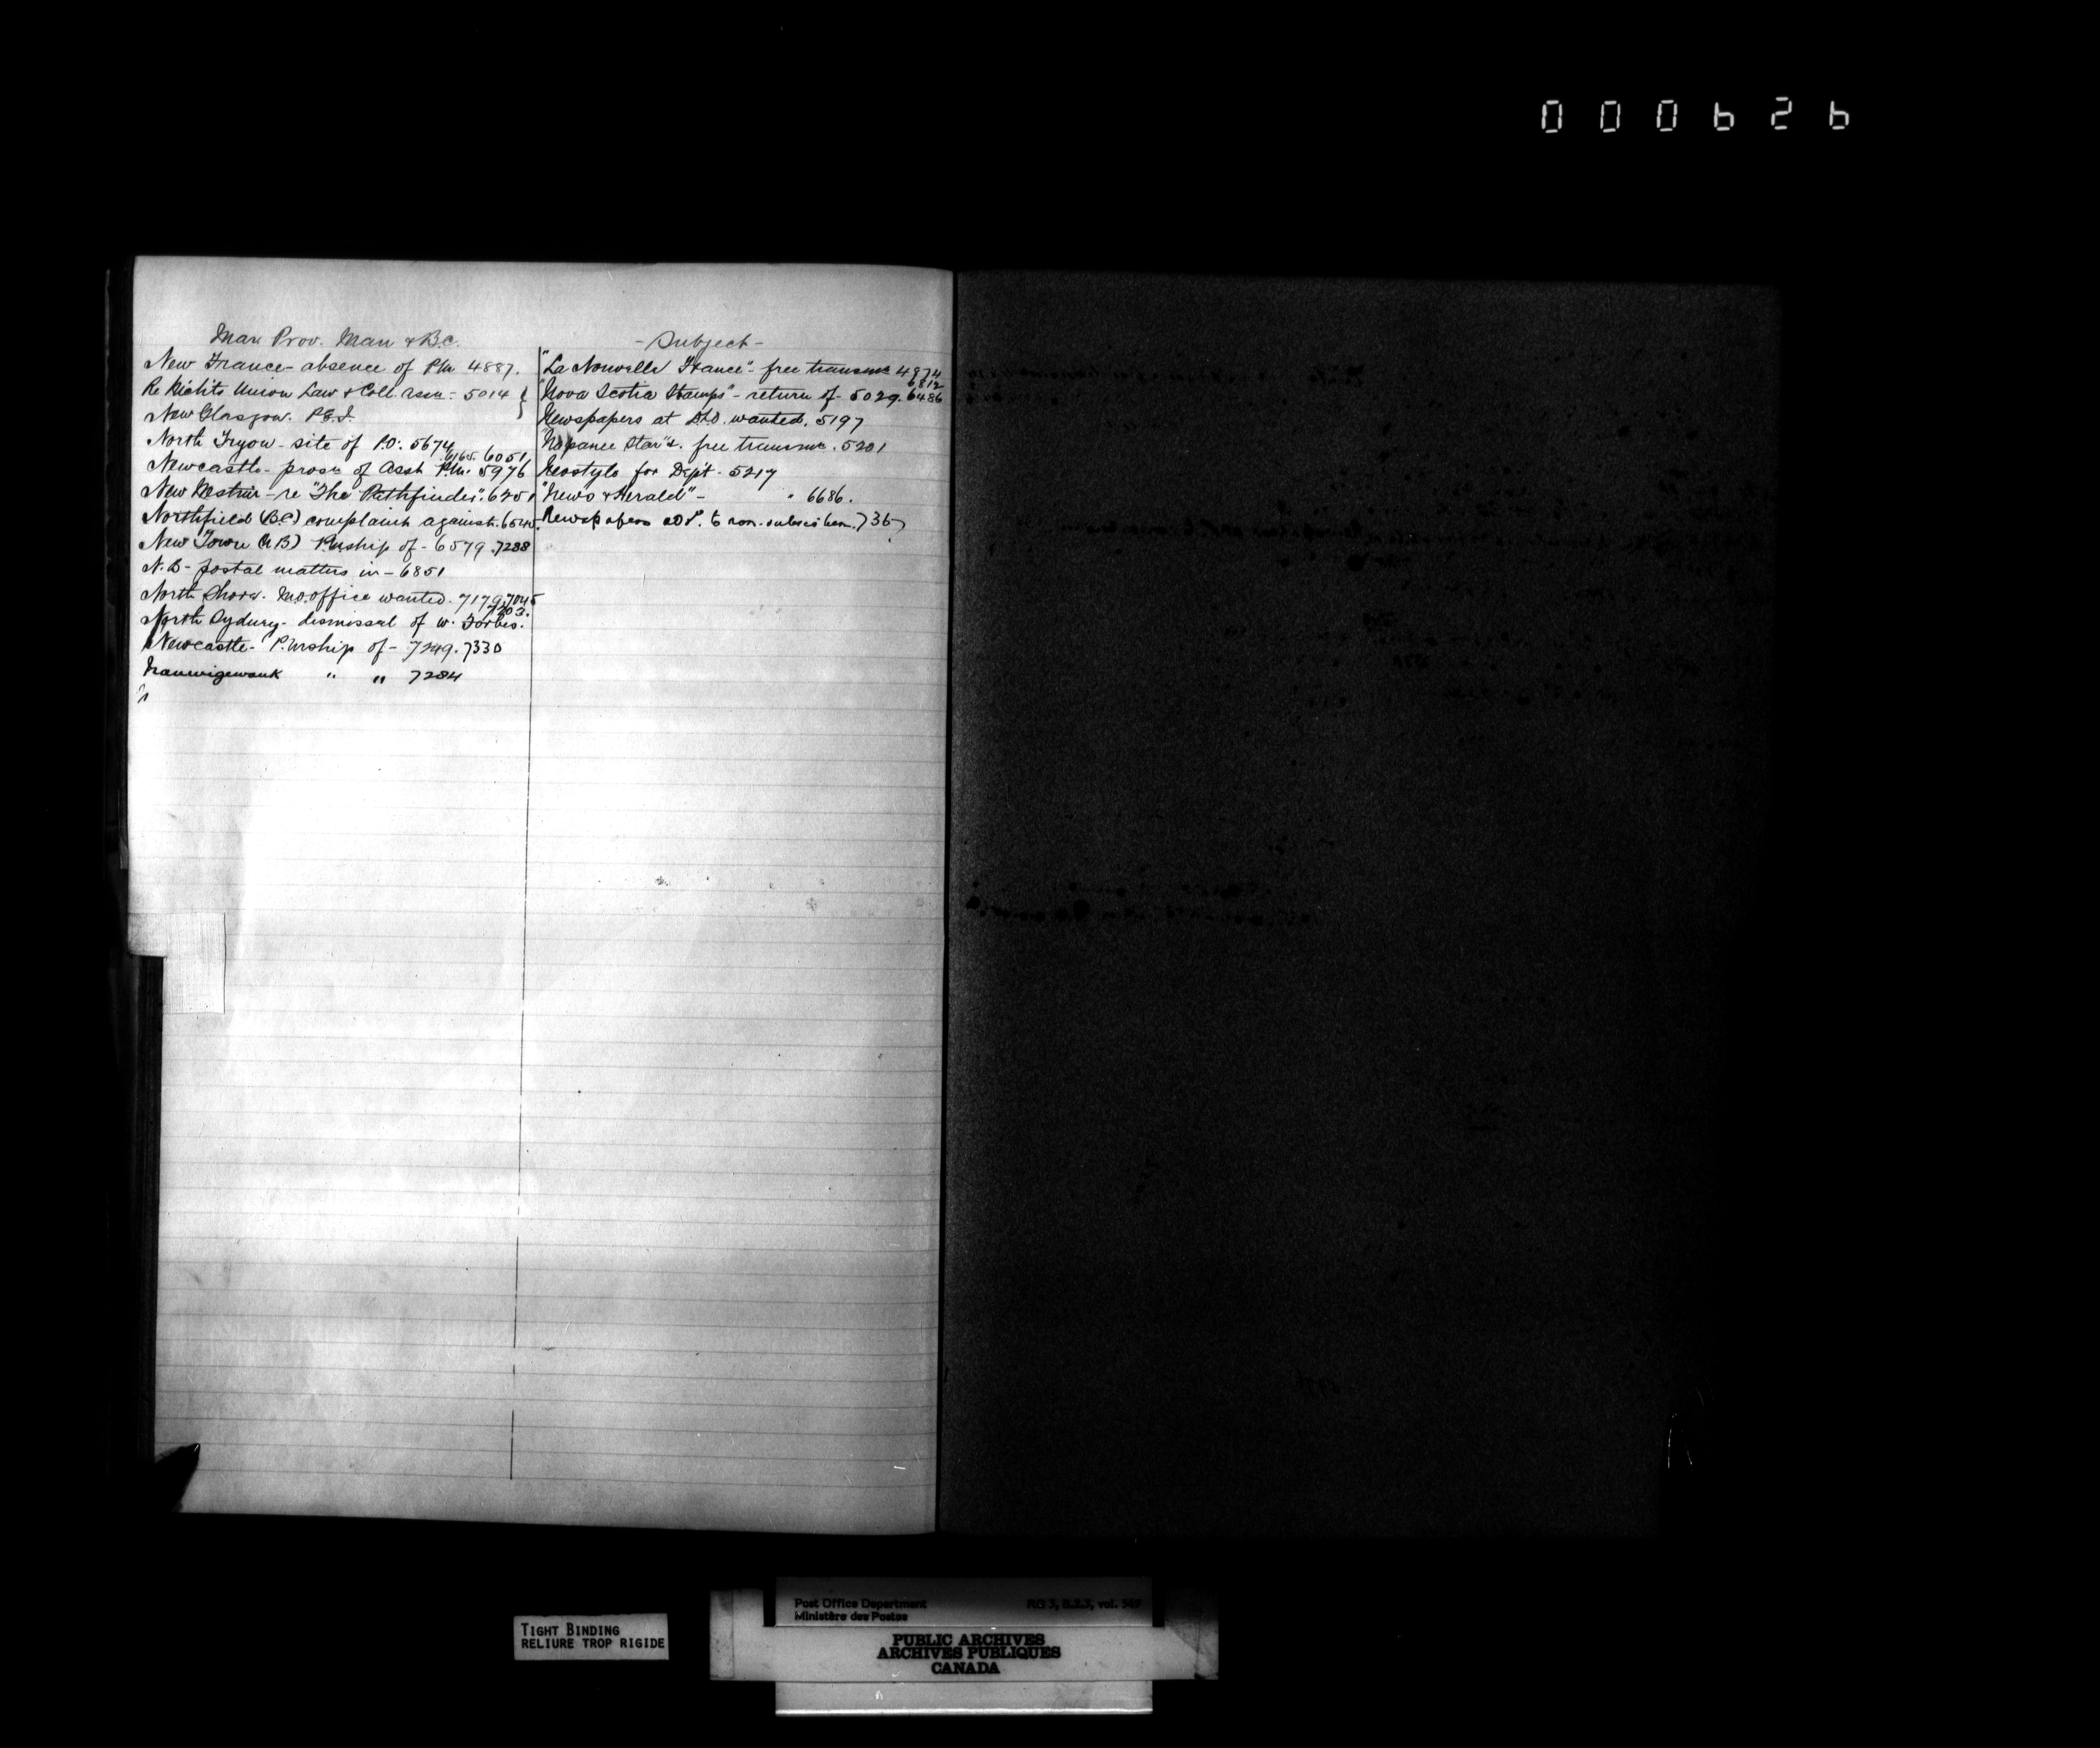 000626
Mar. Prov. Man & B.C.
New France - absence of P.M. 4887.
Re Nichts Union Law & Coll. Assn. - 5014
New Glasgow. P.E.I.
North Tryon - site of P.O. 5674
6165. 6051
Newcastle - prosn of Asst P.M. 5976
New - re "The Pathfinder". 6251
Northfield (B.C.) complaint against. 6540.
New Town (N.B) P.mship of - 6579. 7288
N.B - postal matters in - 6851
North Shore. M.O. office wanted. 7179. 7045
7203.
North Sydney - dismissal of W. Forbes.
Newcastle - P.Mship of - 7249. 7330
Nauwigewauk " " 7284
- Subject -
"La Nouvelle France" - free transmn 4974
6812
"Nova Scotia Stamps" - return of - 5029. 6486
Newspapers at D.L.O. wanted. 5197
"Napanee Star" free transmn. 5201
Neostyle for Dept - 5217
"News & Herald" - " 6686.
Newspapers add. to non-subscribers. 7357
TIGHT BINDING
RELIURE TROP RIGIDE
Post Office Department
Ministère des Postes
RG 3, B.2.3, vol. 569
PUBLIC ARCHIVES
ARCHIVES PUBLIQUES
CANADA